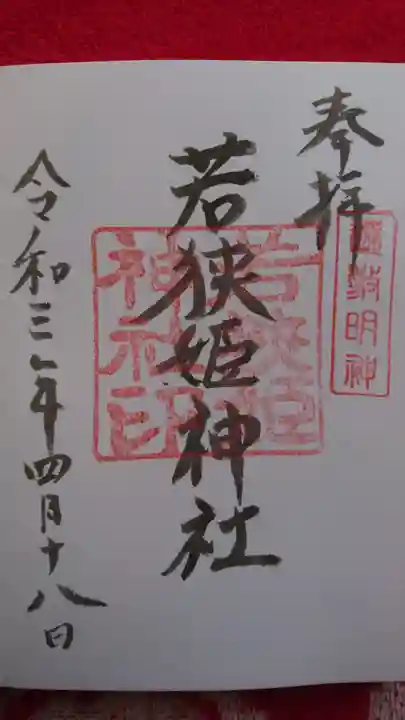 奉拝
若狭姫神社
若狭姫
神社印
明神
令和三年四月十八日